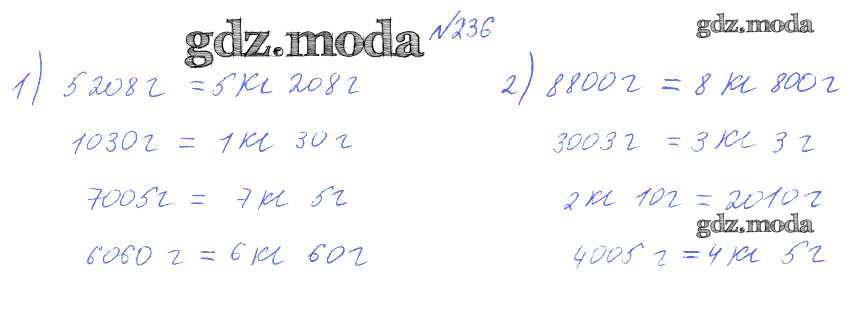 gdz.moda №236 gdz.moda
1) 5208г = 5 кг 208г
1030г = 1 кг 30г
7005г = 7 кг 5г
6060 г = 6 кг 60г
2) 8800г = 8 кг 800г
3003г = 3 кг 3 г
2 кг 10г = 2010г
gdz.moda
4005 г = 4 кг 5г